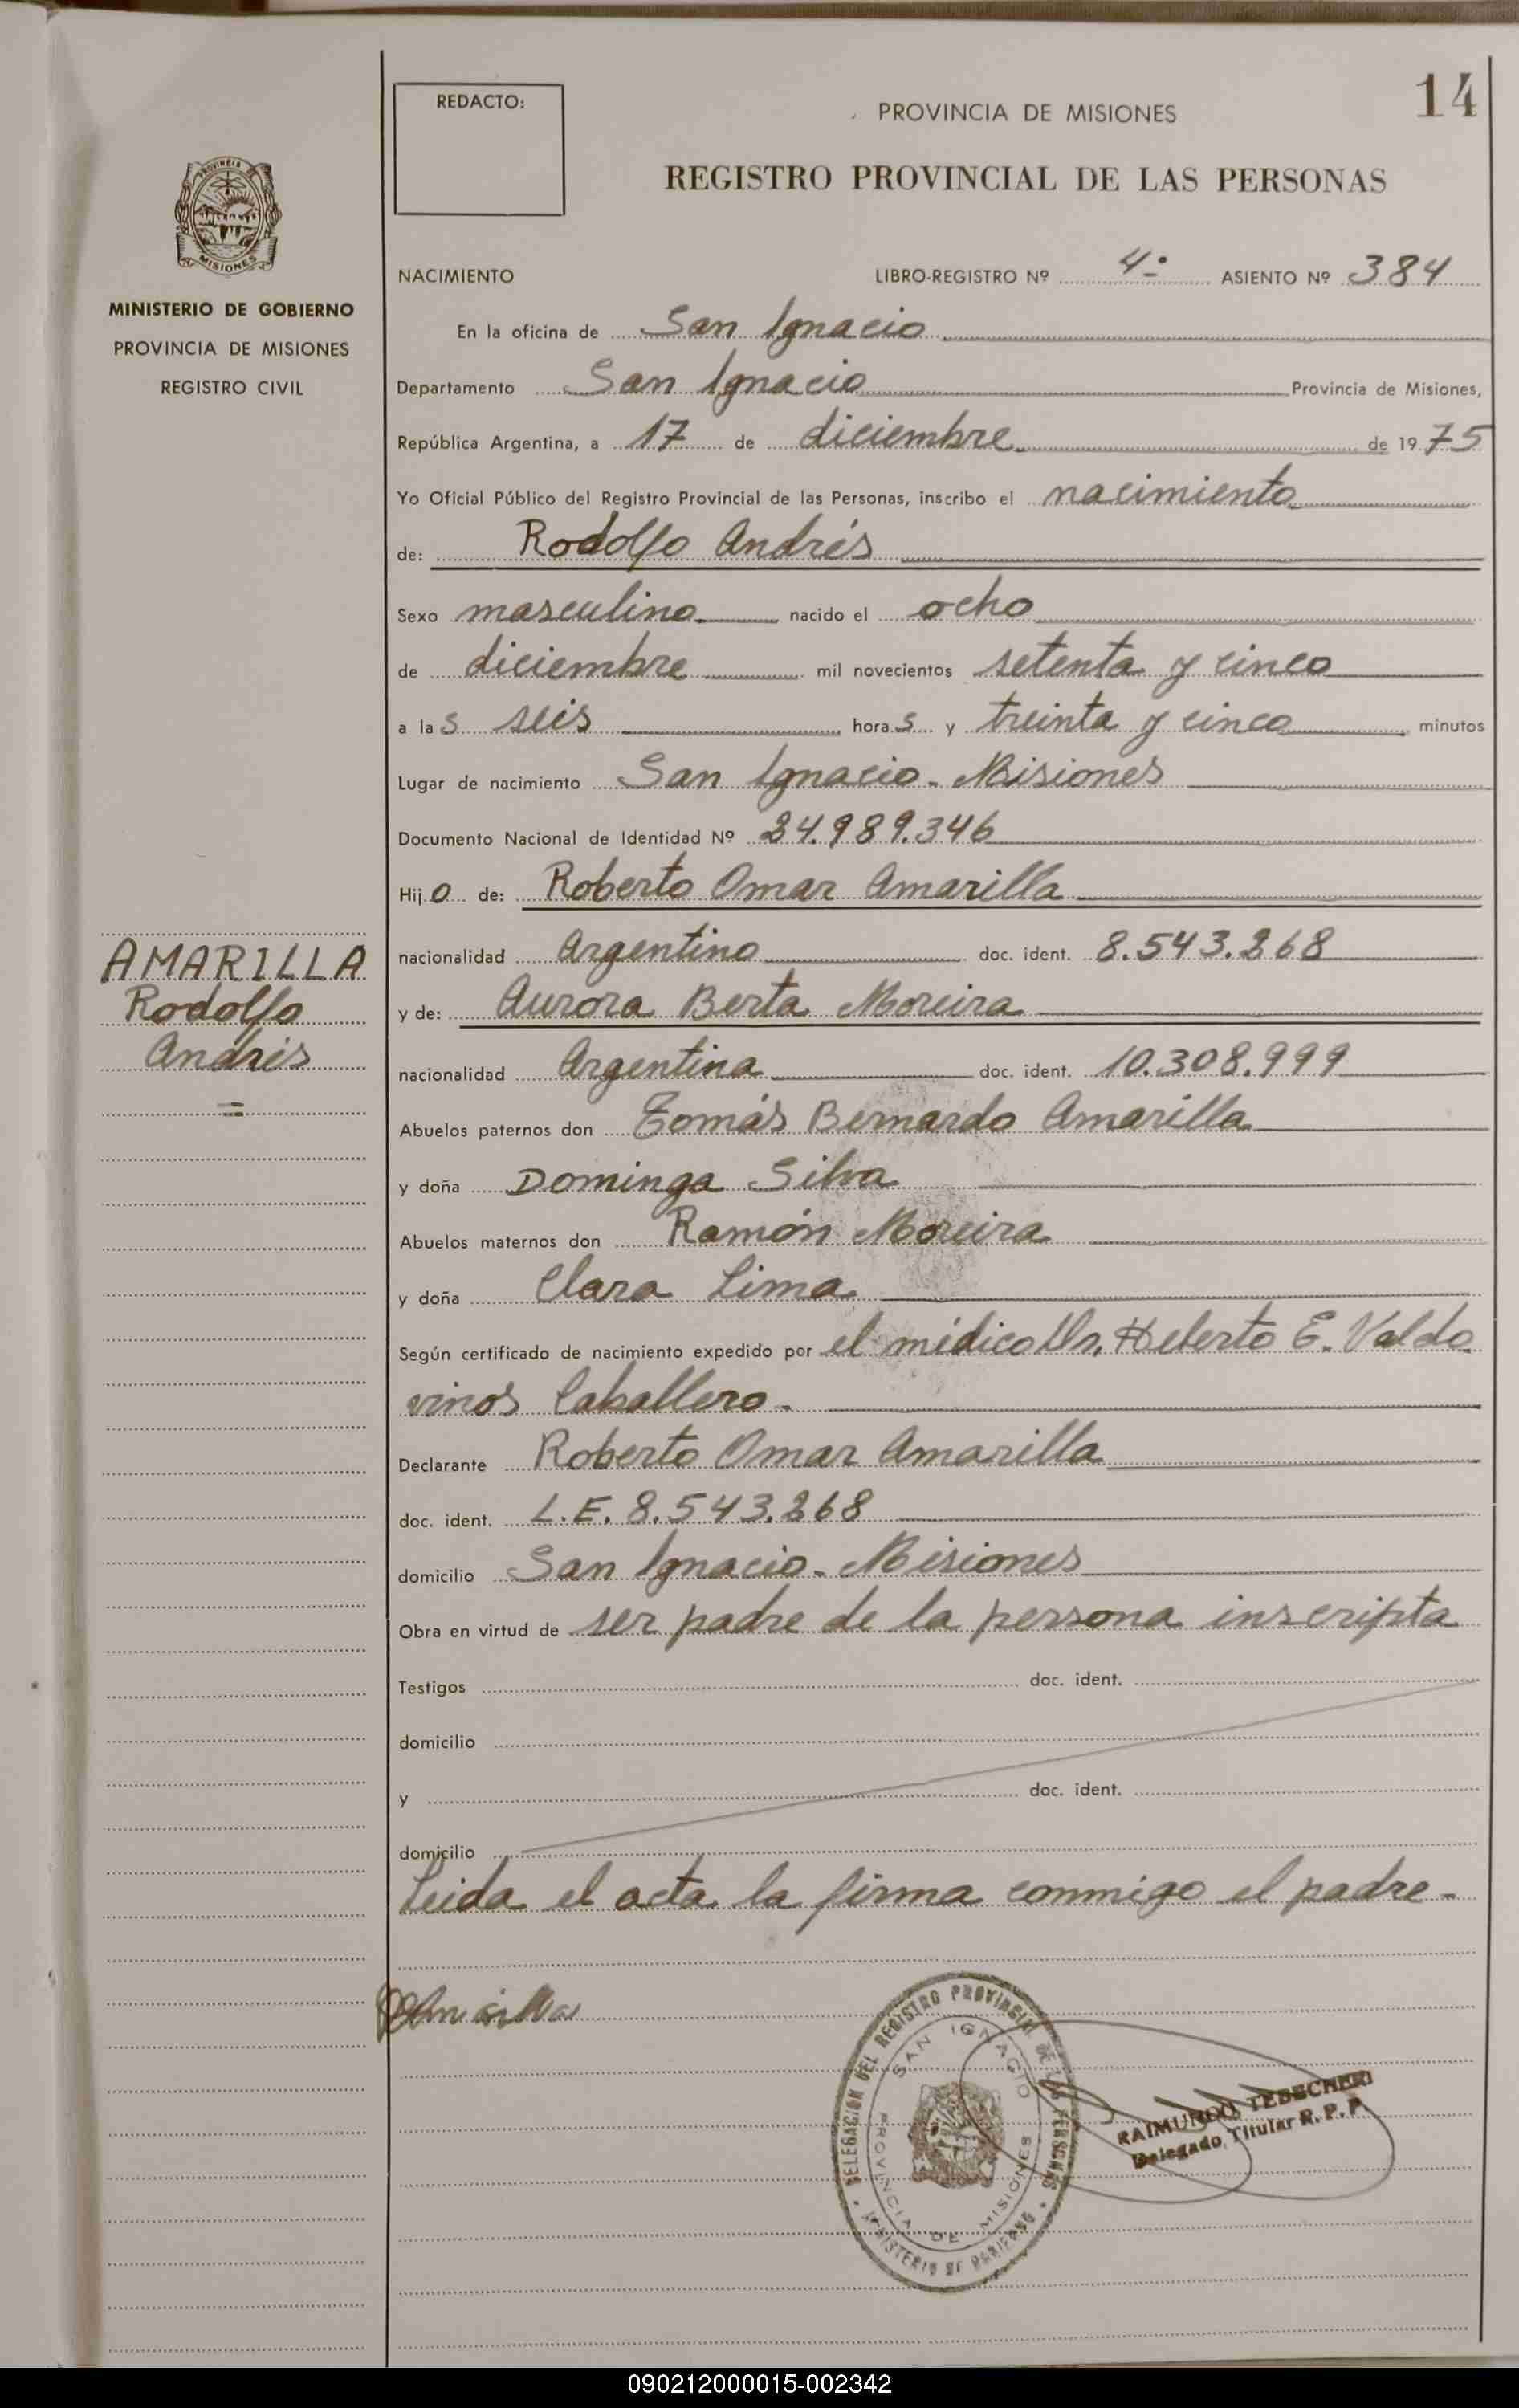 14
REDACTO:
PROVINCIA DE MISIONES
REGISTRO PROVINCIAL DE LAS PERSONAS
MISIONES
MINISTERIO DE GOBIERNO
PROVINCIA DE MISIONES
REGISTRO CIVIL
NACIMIENTO LIBRO-REGISTRO Nº 4º ASIENTO Nº 384
En la oficina de San Ignacio
Departamento San Ignacio Provincia de Misiones,
República Argentina, a 17 de diciembre de 1975
Yo Oficial Público del Registro Provincial de las Personas, inscribo el nacimiento
de: Rodolfo Andrés
Sexo masculino nacido el ocho
de diciembre mil novecientos setenta y cinco
a las seis horas y treinta y cinco minutos
Lugar de nacimiento San Ignacio - Misiones
Documento Nacional de Identidad Nº 24.989.346
Hijo de: Roberto Omar Amarilla
AMARILLA
Rodolfo
Andrés
=
nacionalidad Argentino doc. ident. 8.543.268
y de: Aurora Berta Moreira
nacionalidad Argentina doc. ident. 10.308.999
Abuelos paternos don Tomás Bernardo Amarilla
y doña Dominga Silva
Abuelos maternos don Ramón Moreira
y doña Clara Lima
Según certificado de nacimiento expedido por el médico Dr. Heberto E. Valdo
vinos Caballero.-
Declarante Roberto Omar Amarilla
doc. ident. L.E. 8.543.268
domicilio San Ignacio - Misiones
Obra en virtud de ser padre de la persona inscripta
Testigos doc. ident.
domicilio
y doc. ident.
domicilio
Leida el acta la firma conmigo el padre.-
Amarilla
DELEGACION DEL REGISTRO PROVINCIAL DE LAS PERSONAS
SAN IGNACIO
PROVINCIA DE MISIONES
MINISTERIO DE GOBIERNO
RAIMUNDO TEBECHERI
Delegado Titular R. P. P.
090212000015-002342